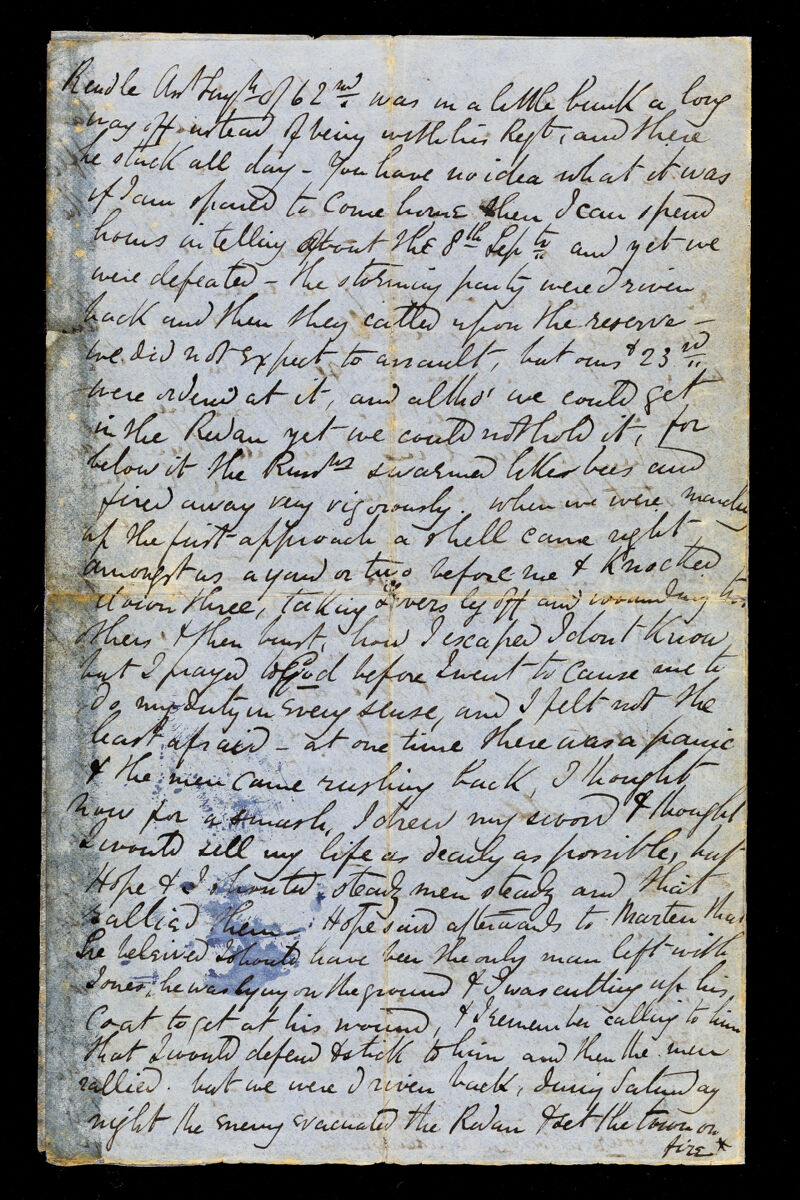 Rendle Asst Surgn of 62nd was in a little bunk a long
way off instead of being with his Regt, and there
he stuck all day - You have no idea what it was
if I am spared to come home then I can spend
hours in telling about the 8th Septr and yet we
were defeated - the storming party were driven
back and then they called upon the reserve -
we did not expect to assault, but ours & 23rd
were ordered at it, and altho' we could get
in the Redan yet we could not hold it, for
below it the Russns swarmed like bees and
fired away very vigorously. when we were marchg
up the first approach a shell came right
amongst us a yard or two before me & knocked
down three, taking leg off and wounding two
others & then burst, how I escaped I don't know
but I prayed to God before I went to cause me to
do my duty in every sense, and I felt not the
least afraid - at one time there was a panic
& the men came rushing back, I thought
now for a smash, I drew my sword & thought
I would sell my life as dearly as possible, but
Hope & I shouted steady men steady and that
rallied them - Hope said afterwards to Marten that
he beleived I should have been the only man left with
Jones, he was lying on the ground & I was cutting up his
Coat to get at his wound, & I remember calling to him
that I would defend & stick to him and then the men
rallied. but we were driven back, during Saturday
night the enemy evacuated the Redan & set the town on
fire